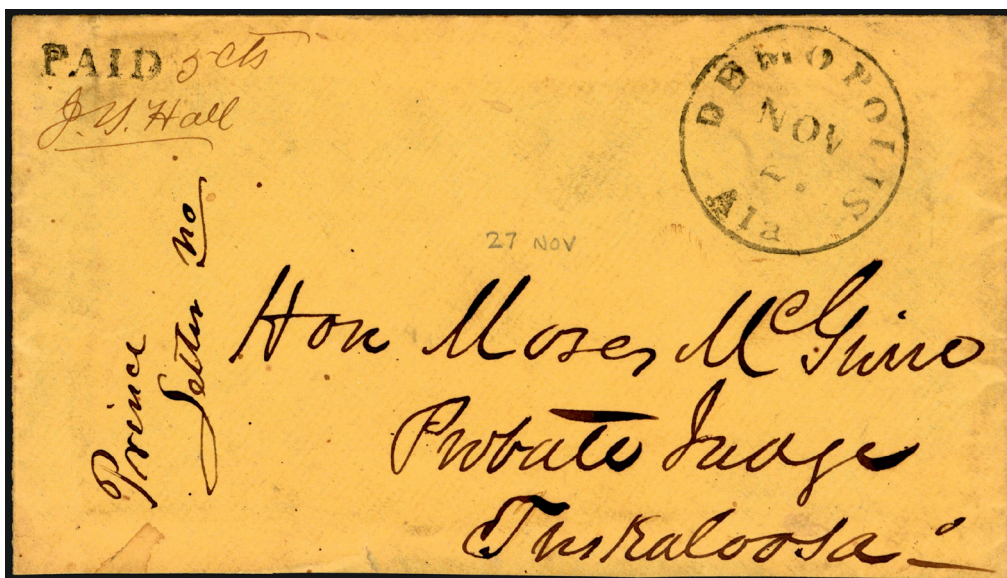 PAID 5 cts
J. Y. Hall
DEMOPOLIS
NOV
Ala
27 NOV
Prince
Letter no
Hon Moses McGuire
Probate Judge
Tuskaloosa